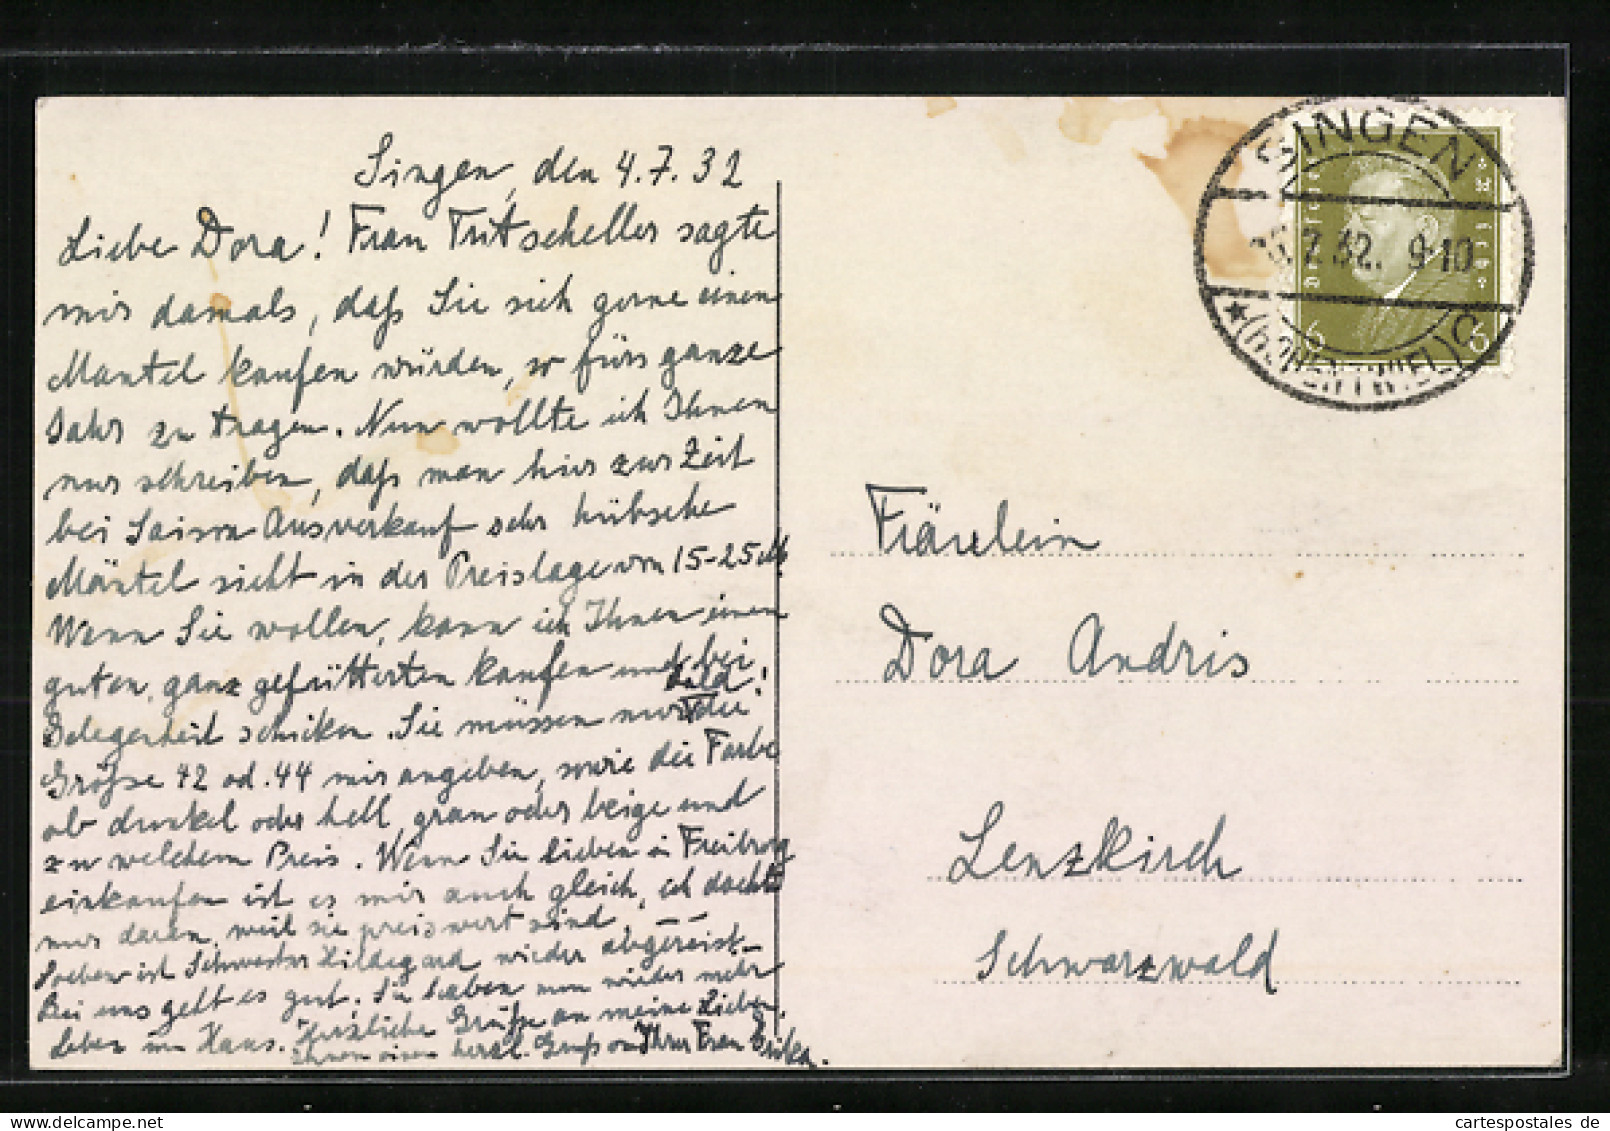 Singen, den 4.7.32
Liebe Dora! Frau Tritscheller sagte
mir damals, daß Sie sich gerne einen
Mantel kaufen würden, so fürs ganze
Jahr zu tragen. Nun wollte ich Ihnen
nur schreiben, daß man hier zur Zeit
bei Saison Ausverkauf sehr hübsche
Mäntel sieht in der Preislage von 15-25 M.
Wenn Sie wollen, kann ich Ihnen einen
guten, ganz gefütterten kaufen und bei
Gelegenheit schicken. Sie müssen nur bald! die
Größe 42 od. 44 mir angeben, sowie die Farbe
ob dunkel oder hell, grau oder beige und
zu welchem Preis. Wenn Sie lieber in Freiburg
einkaufen ist es mir auch gleich, ich dachte
nur daran, weil sie preiswert sind. – –
Soeben ist Schwester Hildegard wieder abgereist –
Bei uns geht es gut. Sie haben nun wieder mehr
Leben im Haus. Herzliche Grüße an meine Lieben,
Ihnen einen herzl. Gruß von Ihrer Frau Erika.
SINGEN
7.32. 9-10
★ (HOHENTWIEL) c
Deutsches Reich
6 6
Fräulein
Dora Andris
Lenzkirch
Schwarzwald
www.cartespostales.de